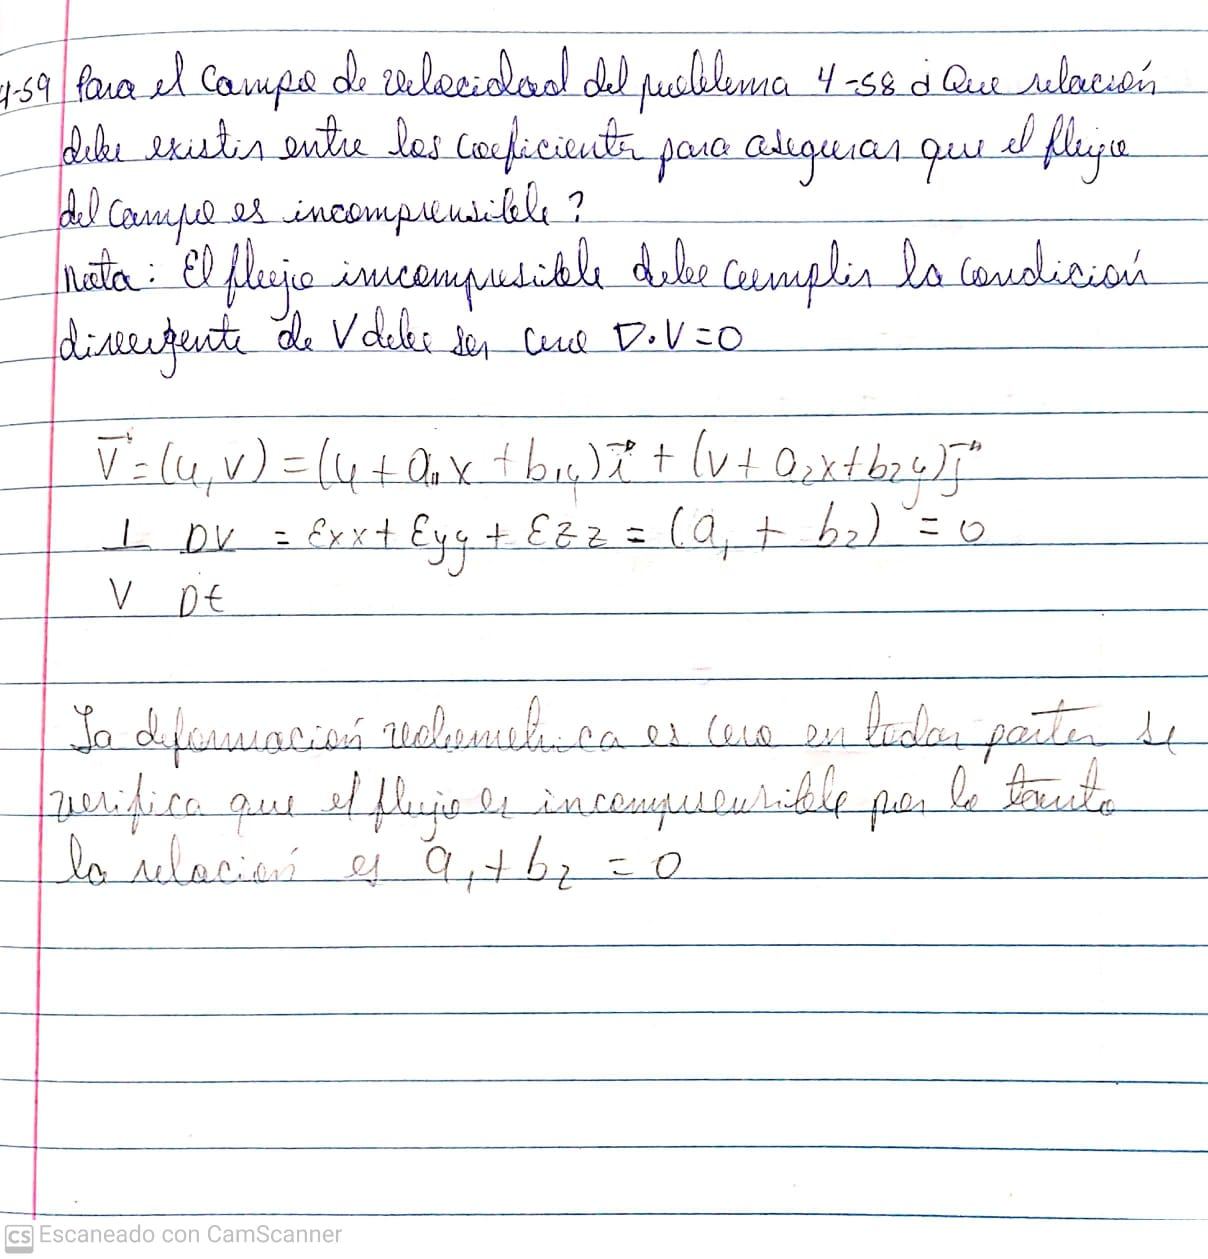 4-59 Para el Campo de velocidad del problema 4-58 ¿ Que relación
debe existir entre los coeficientes para asegurar que el flujo
del campo es incomprensible ?
Nota : El flujo imcompresible debe cumplir la condición
divergente de V debe ser cero ∇.V=0
V⃗=(u,v)=(u+a₁x+b₁y)i⃗+(v+a₂x+b₂y)j⃗
1 DV = Exx+Eyy+Ezz=(a₁+b₂)=0
V Dt
La deformación volumetrica es cero en todas partes se
verifica que el flujo es incomprensible por lo tanto
la relación es a₁+b₂=0
CS Escaneado con CamScanner